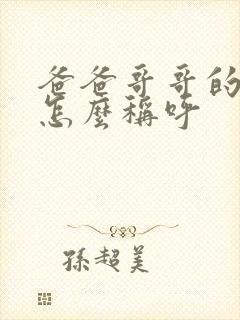 爸爸哥哥的
怎麼稱呼
孫超美